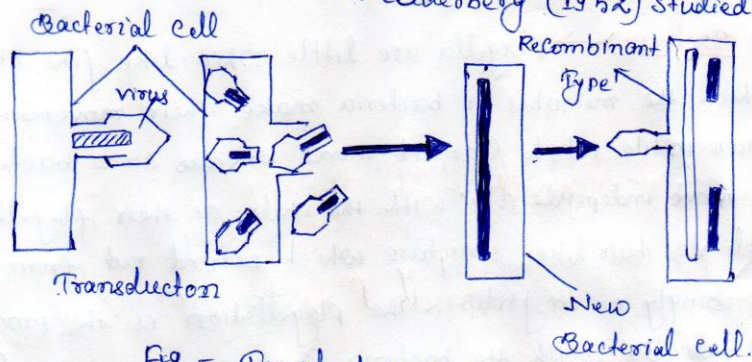 (1952) studied
Bacterial cell
Recombinant
Type
virus
Transducton
New
Bacterial cell.
Fig -